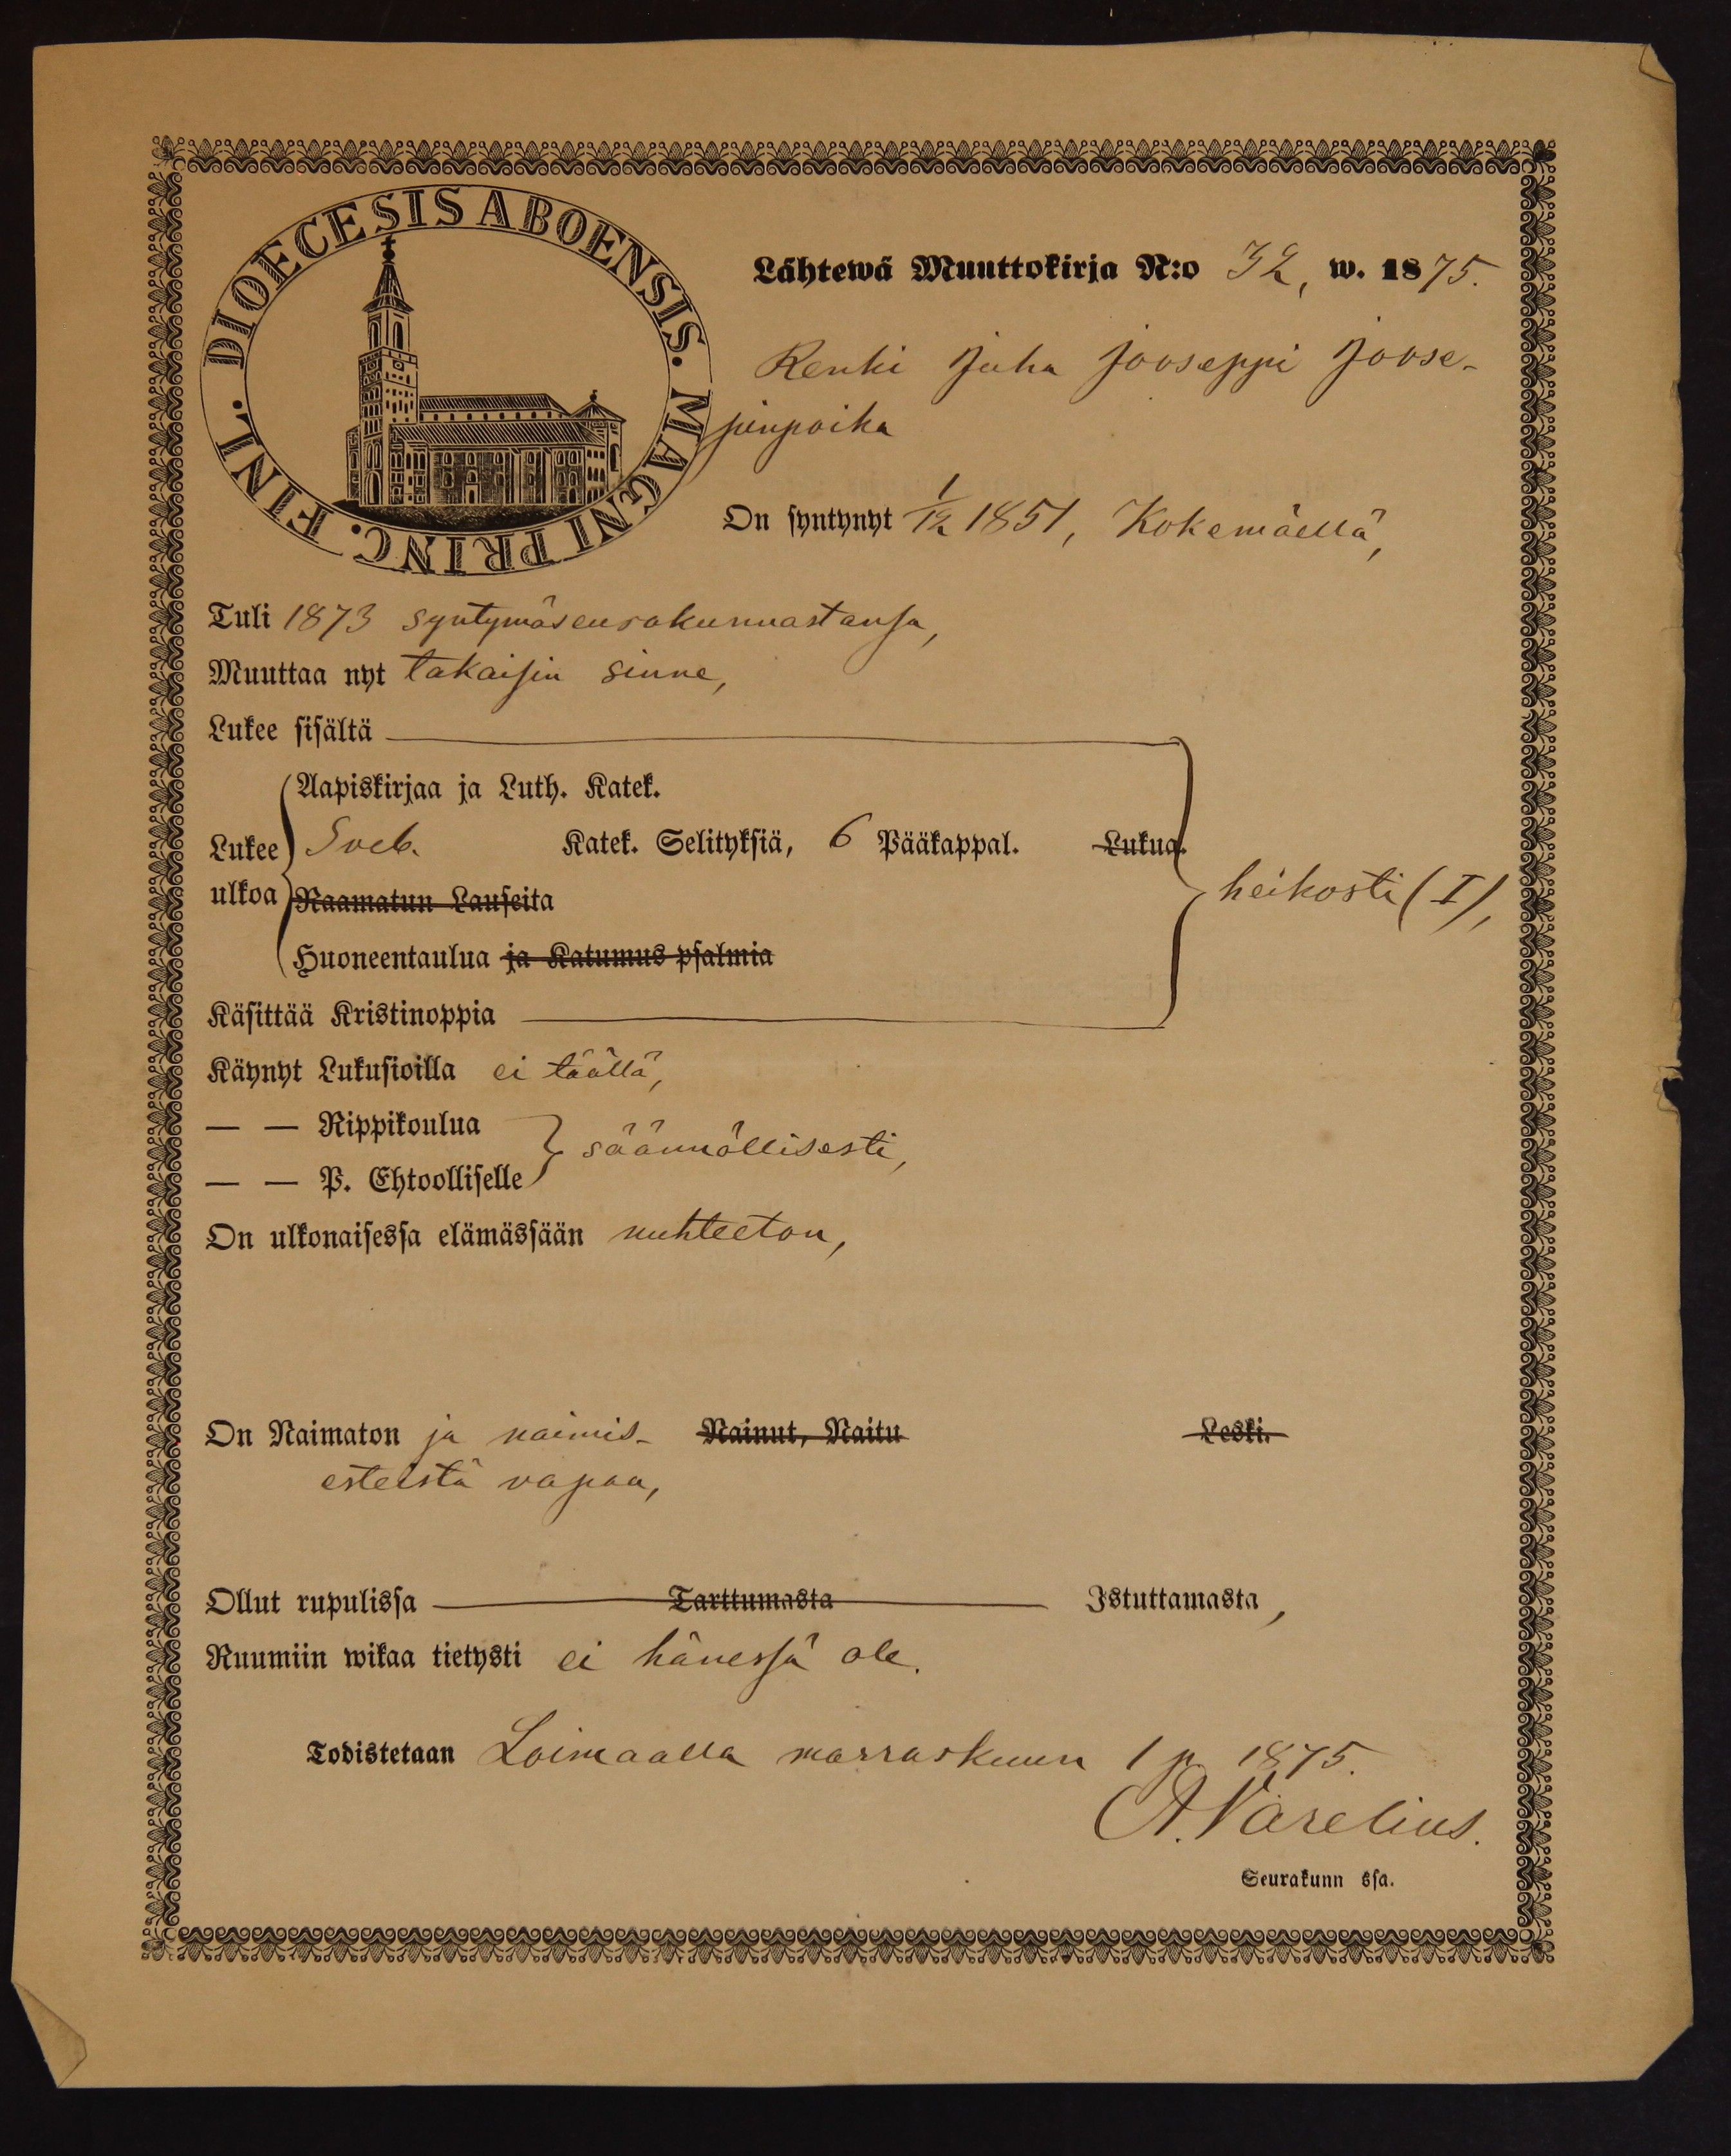 DIOECESIS ABOENSIS. MAGNI PRINC. FINL.
Lähtewä Muuttokirja N:o 32, w. 1875.
Renki Juha Jooseppi Joose-
pinpoika
On syntynyt 1/12 1851, Kokemäellä,
Tuli 1873 syntymäseurakunnastansa,
Muuttaa nyt takaisin sinne,
Lukee sisältä
Aapiskirjaa ja Luth. Katek.
Lukee Sveb. Katek. Selityksiä, 6 Pääkappal. Lukua.
ulkoa Raamatun Lauseita
heikosti (I),
Huoneentaulua ja Katumus psalmia
Käsittää Kristinoppia
Käynyt Lukusioilla ei täällä,
— — Rippikoulua
säännöllisesti,
— — P. Ehtoolliselle
On ulkonaisessa elämässään nuhteeton,
On Naimaton ja naimis- Nainut, Naitu Leski.
esteistä vapaa,
Ollut rupulissa Tarttumasta Istuttamasta,
Ruumiin wikaa tietysti ei hänessä ole.
Todistetaan Loimaalla marraskuun 1 p. 1875.
A. Varelius.
Seurakunn ssa.